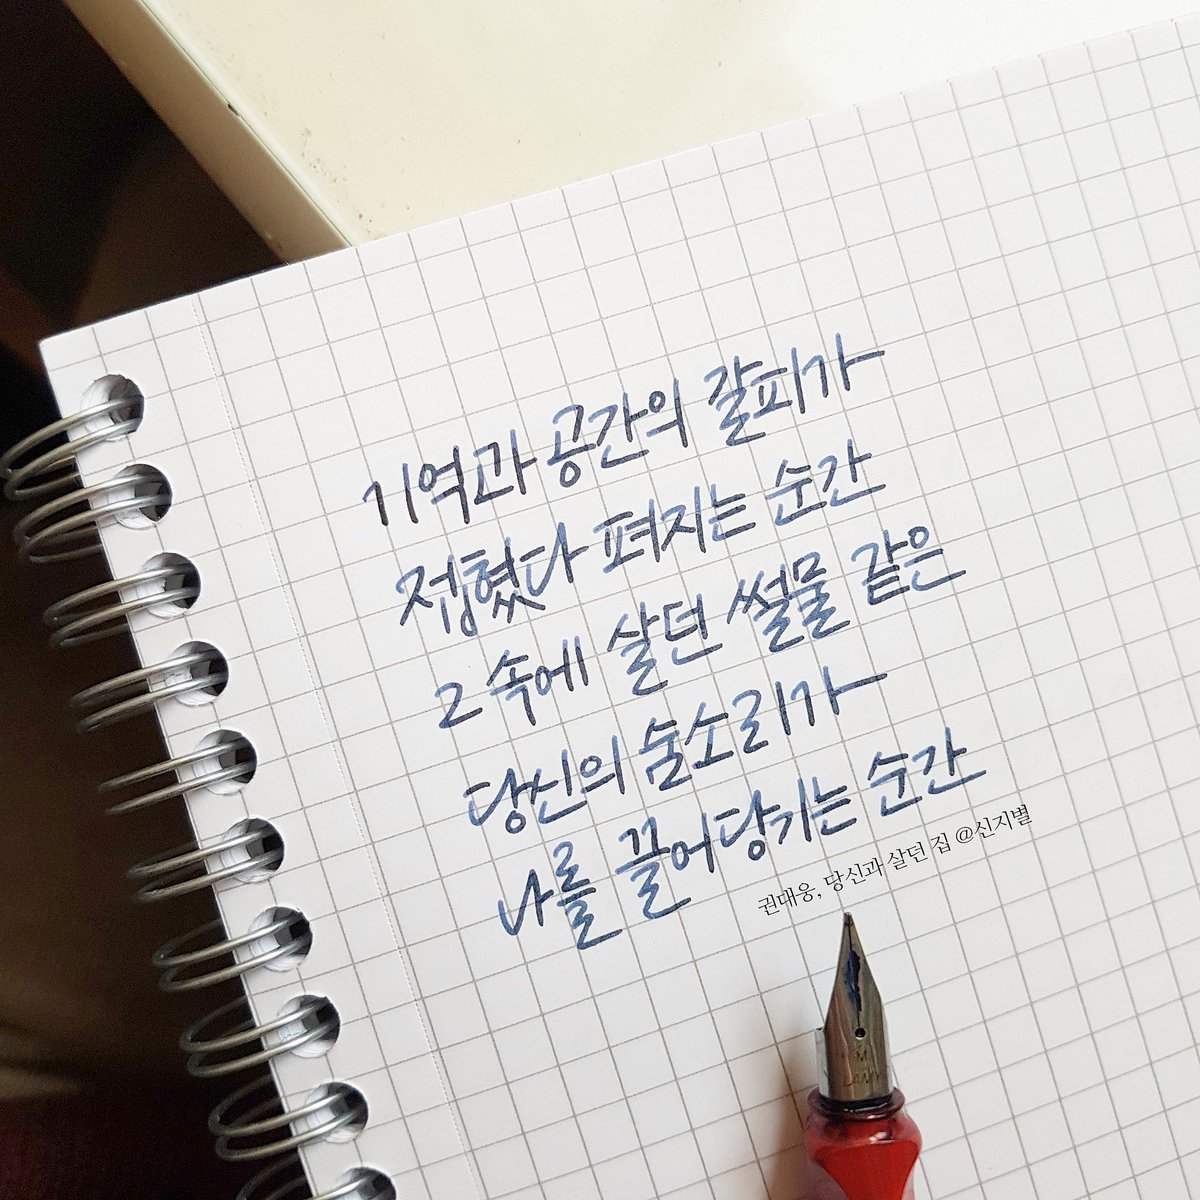 기억과 공간의 갈피가
접혔다 펴지는 순간
그 속에 살던 썰물 같은
당신의 숨소리가
나를 끌어당기는 순간
권대웅, 당신과 살던 집 @신지별
M
Lamy